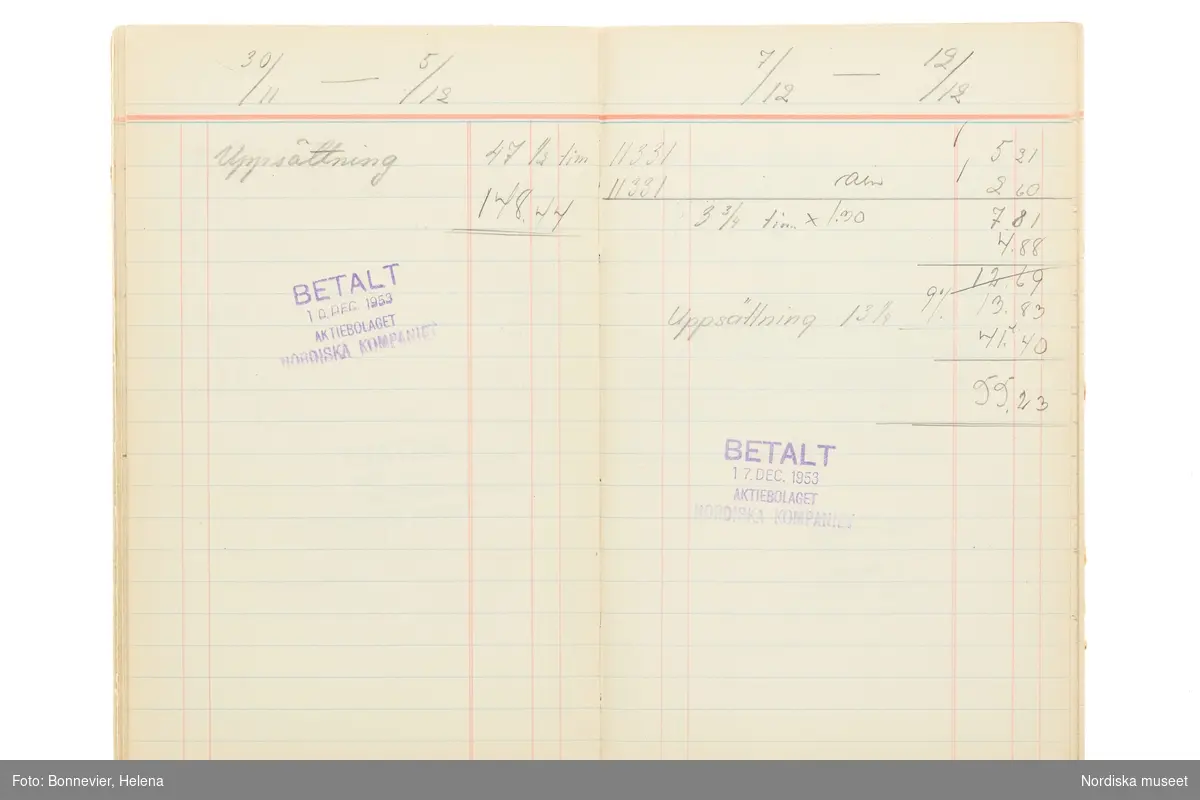 30/11 — 5/12
Uppsättning 47 1/2 tim
148.44
BETALT
10. DEC. 1953
AKTIEBOLAGET
NORDISKA KOMPANIET
7/12 — 12/12
11331 5 21
11331 2 60
3 3/4 tim. x 1.30 7.81
4.88
12.69
9% 13.83
Uppsättning 13 1/4 41.40
55.23
BETALT
17. DEC. 1953
AKTIEBOLAGET
NORDISKA KOMPANIET
Foto: Bonnevier, Helena
Nordiska museet